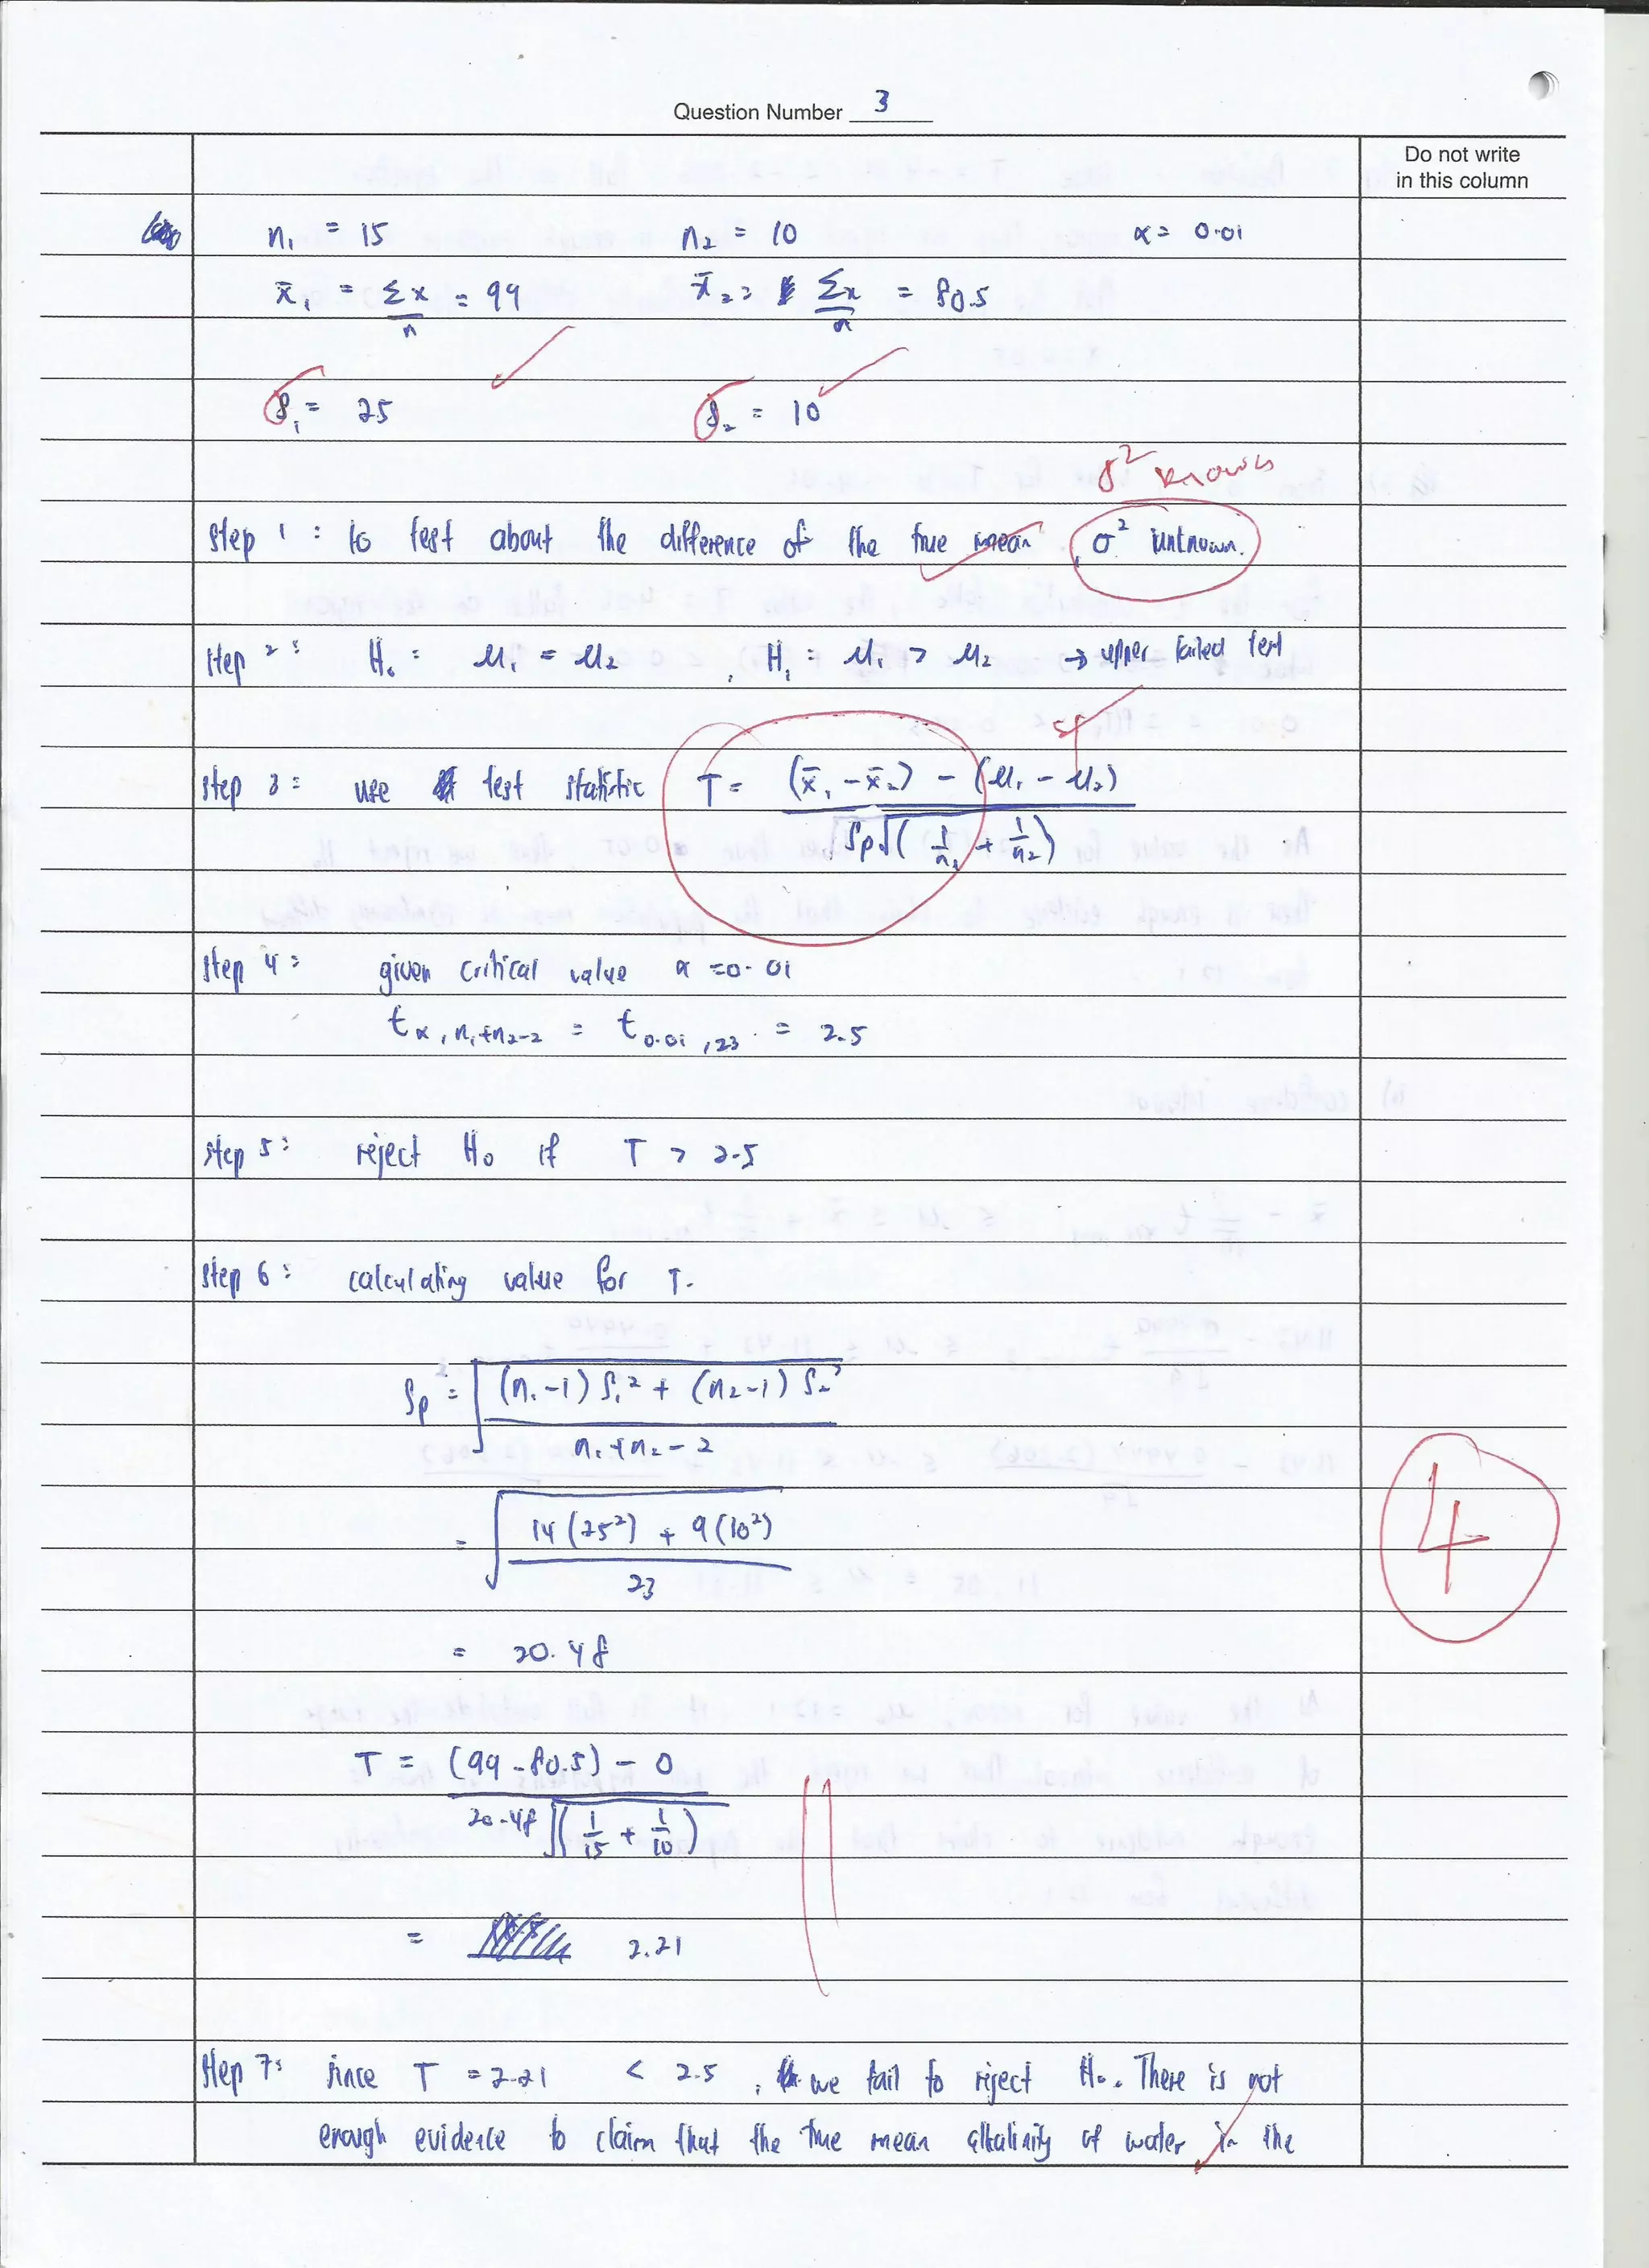 Question Number 3
Do not write
in this column
n₁ = 15 n₂ = 10 α = 0.01
x̄₁ = Σx/n = 99 x̄₂ = Σx/n = 80.5
S₁ = 25 S₂ = 10
σ² known
Step 1 : to test about the difference of the true mean, σ² unknown.
Step 2 : H₀ : μ₁ = μ₂ , H₁ : μ₁ > μ₂ → upper tailed test
Step 3 : use test statistic T = (x̄₁ - x̄₂) - (μ₁ - μ₂) / Sp√(1/n₁ + 1/n₂)
Step 4 : given critical value α = 0.01
t α, n₁+n₂-2 = t 0.01, 23 = 2.5
Step 5 : reject H₀ if T > 2.5
Step 6 : calculating value for T.
Sp² = √((n₁-1) S₁² + (n₂-1) S₂² / n₁+n₂-2)
= √(14(25²) + 9(10²) / 23)
= 20.48
4
T = (99 - 80.5) - 0 / 20.48 √(1/15 + 1/10)
= 2.21
Step 7: since T = 2.21 < 2.5, we fail to reject H₀. There is not
enough evidence to claim that the true mean alkalinity of water in the